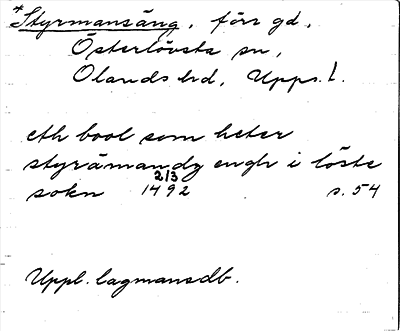 *Styrmansäng, förr gd,
Österlövsta sn,
Olands hd, Upps. l.
eth bool som heter
styrämandz engh i löste
sokn 2/3 1492 s. 54
Uppl. lagmansdb.